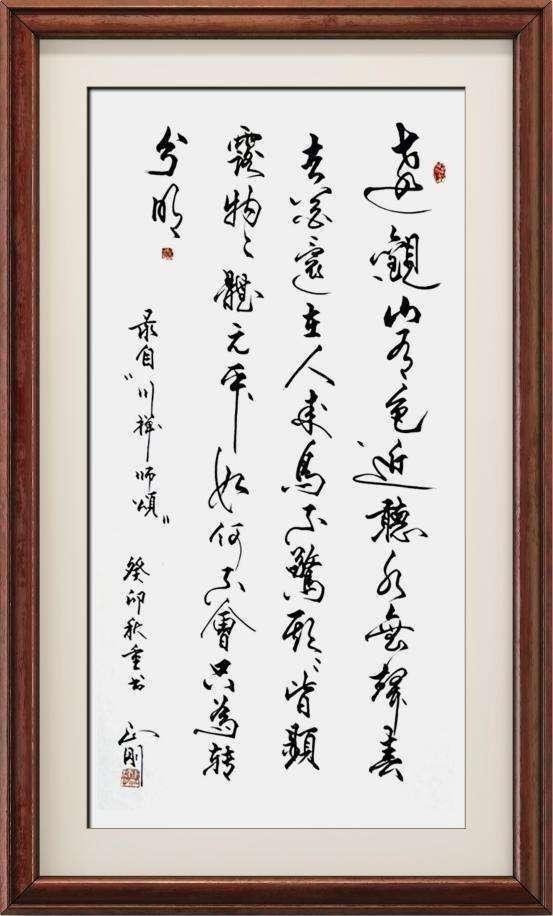 遠觀山有色近聽水無聲春
去花還在人來鳥不驚頭〻皆顯
露物〻體元平如何不會只為转
分明
录自“川禅师頌” 癸卯秋重书 正刚